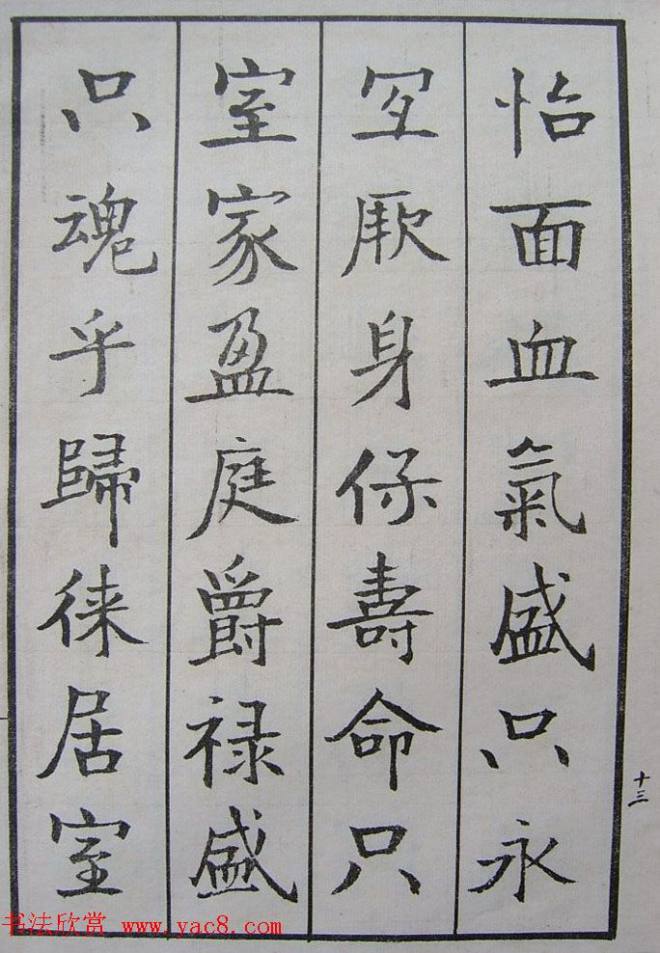 怡面血氣盛只永
冝厥身保壽命只
室家盈庭爵禄盛
只魂乎歸徕居室
十三
书法欣赏 www.yac8.com